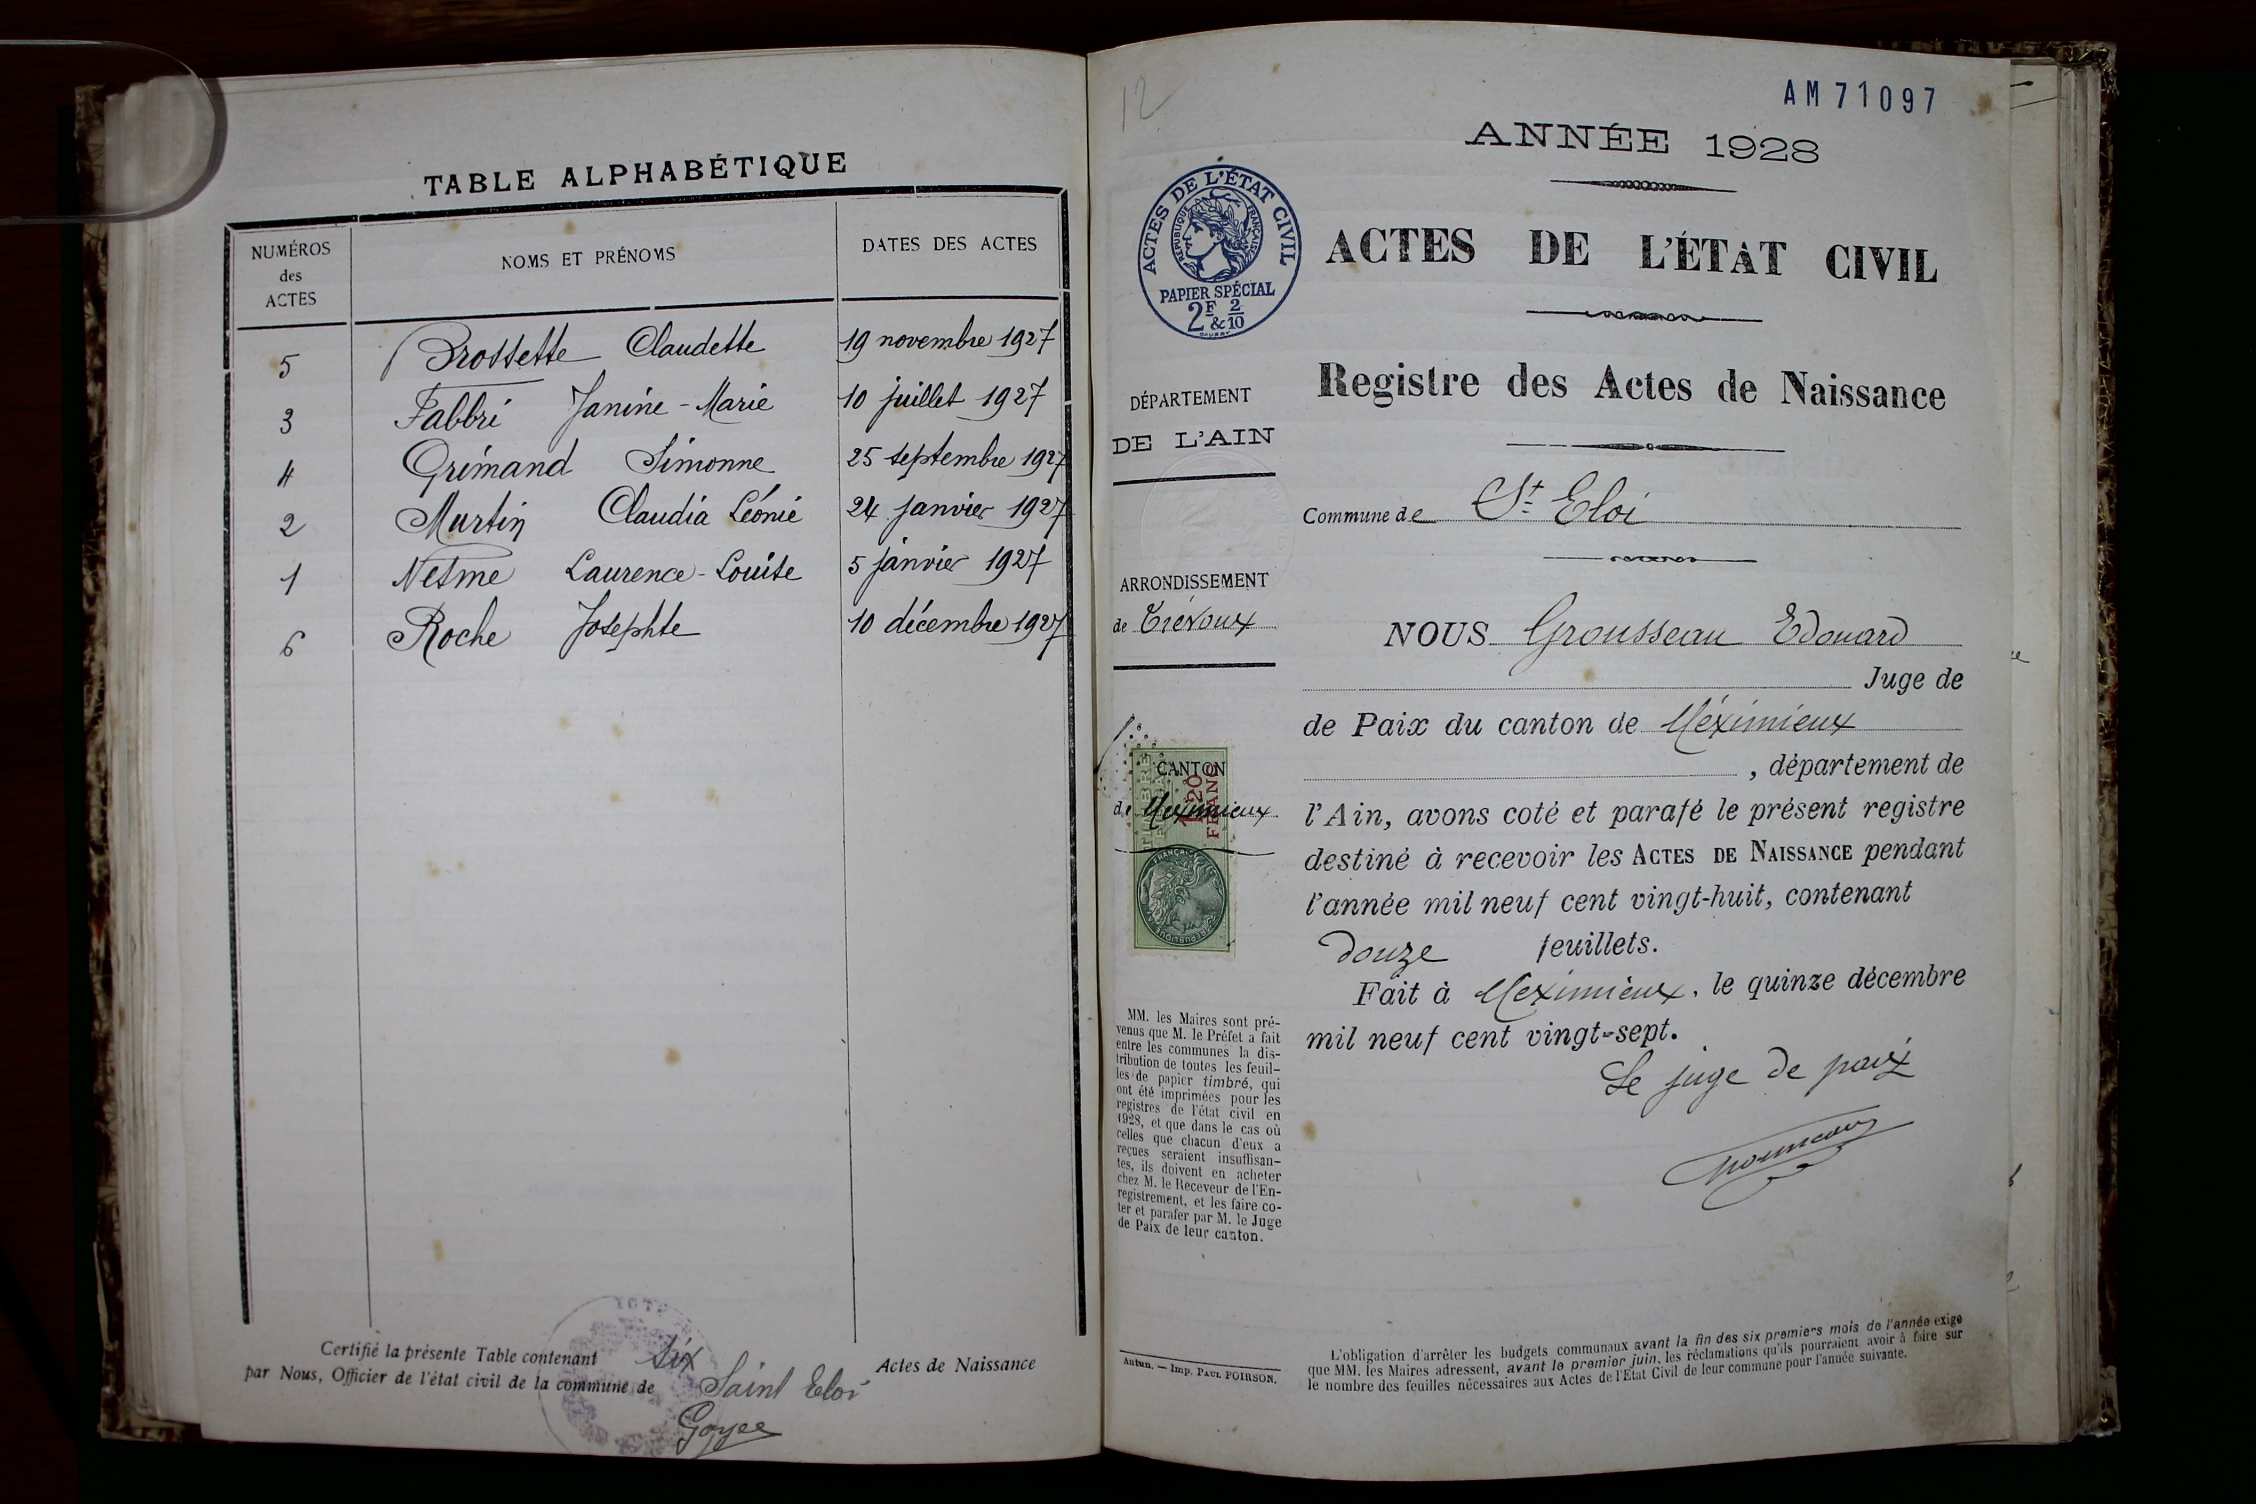 TABLE ALPHABÉTIQUE
NUMÉROS des ACTES NOMS ET PRÉNOMS DATES DES ACTES
5 Brossette Claudette 19 novembre 1927
3 Fabbri Janine-Marie 10 juillet 1927
4 Grimand Simonne 25 septembre 1927
2 Martin Claudia Léonie 24 janvier 1927
1 Nesme Laurence-Louise 5 janvier 1927
6 Roche Josephte 10 décembre 1927
Certifié la présente Table contenant six Actes de Naissance
par Nous, Officier de l'état civil de la commune de Saint Eloi
Goyer
12
AM 71097
ANNÉE 1928
ACTES DE L'ÉTAT CIVIL
RÉPUBLIQUE FRANÇAISE
PAPIER SPÉCIAL
2F & 2/10
ACTES DE L'ÉTAT CIVIL
Registre des Actes de Naissance
DÉPARTEMENT
DE L'AIN
Commune de St Eloi
ARRONDISSEMENT
de Trévoux
NOUS Grousseau Edouard
Juge de
de Paix du canton de Méximieux
, département de
l'Ain, avons coté et parafé le présent registre
destiné à recevoir les ACTES DE NAISSANCE pendant
l'année mil neuf cent vingt-huit, contenant
douze feuillets.
Fait à Meximieux, le quinze décembre
mil neuf cent vingt-sept.
Le juge de paix
CANTON
de Méximieux
1F20
FRANC
MM. les Maires sont pré-
venus que M. le Préfet a fait
entre les communes la dis-
tribution de toutes les feuil-
les de papier timbré, qui
ont été imprimées pour les
registres de l'état civil en
1928, et que dans le cas où
celles que chacun d'eux a
reçues seraient insuffisan-
tes, ils doivent en acheter
chez M. le Receveur de l'En-
registrement, et les faire co-
ter et parafer par M. le Juge
de Paix de leur canton.
Autun. — Imp. PAUL POIRSON.
L'obligation d'arrêter les budgets communaux avant la fin des six premiers mois de l'année exige
que MM. les Maires adressent, avant le premier juin, les réclamations qu'ils pourraient avoir à faire sur
le nombre des feuilles nécessaires aux Actes de l'Etat Civil de leur commune pour l'année suivante.